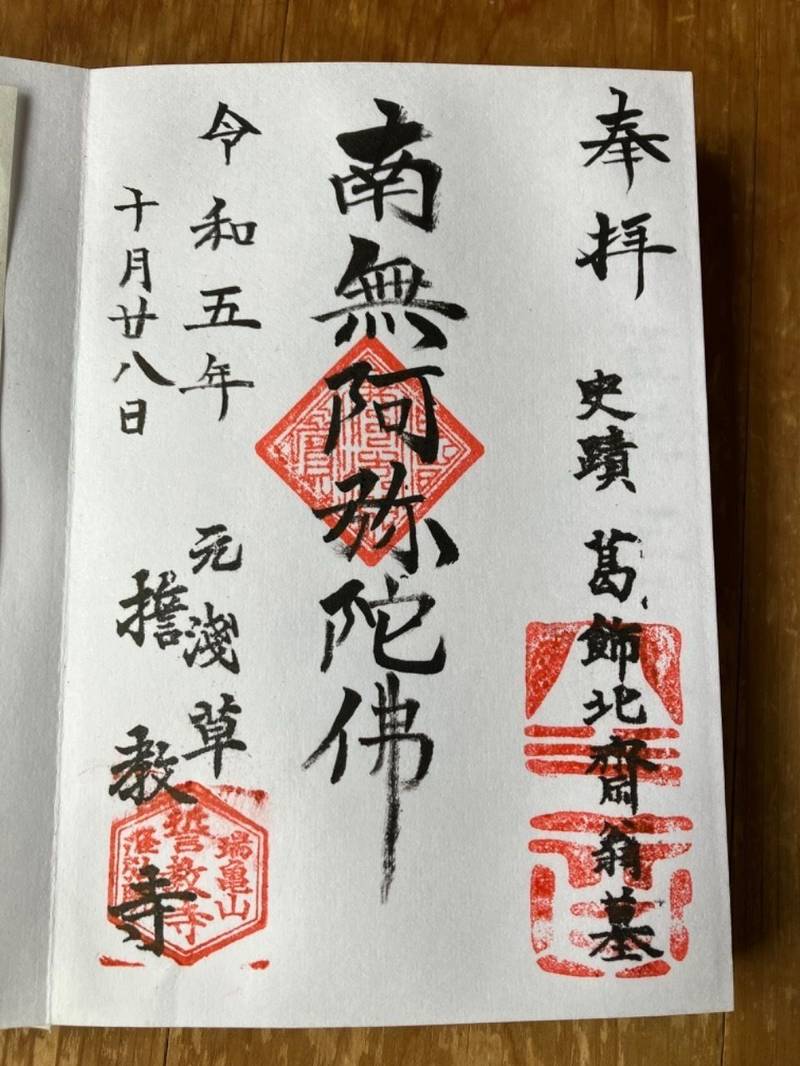 奉拝 史蹟 葛飾北齋翁墓
南無阿弥陀佛
令和五年 元淺草
十月廿八日 誓教寺
瑞亀山
誓教寺